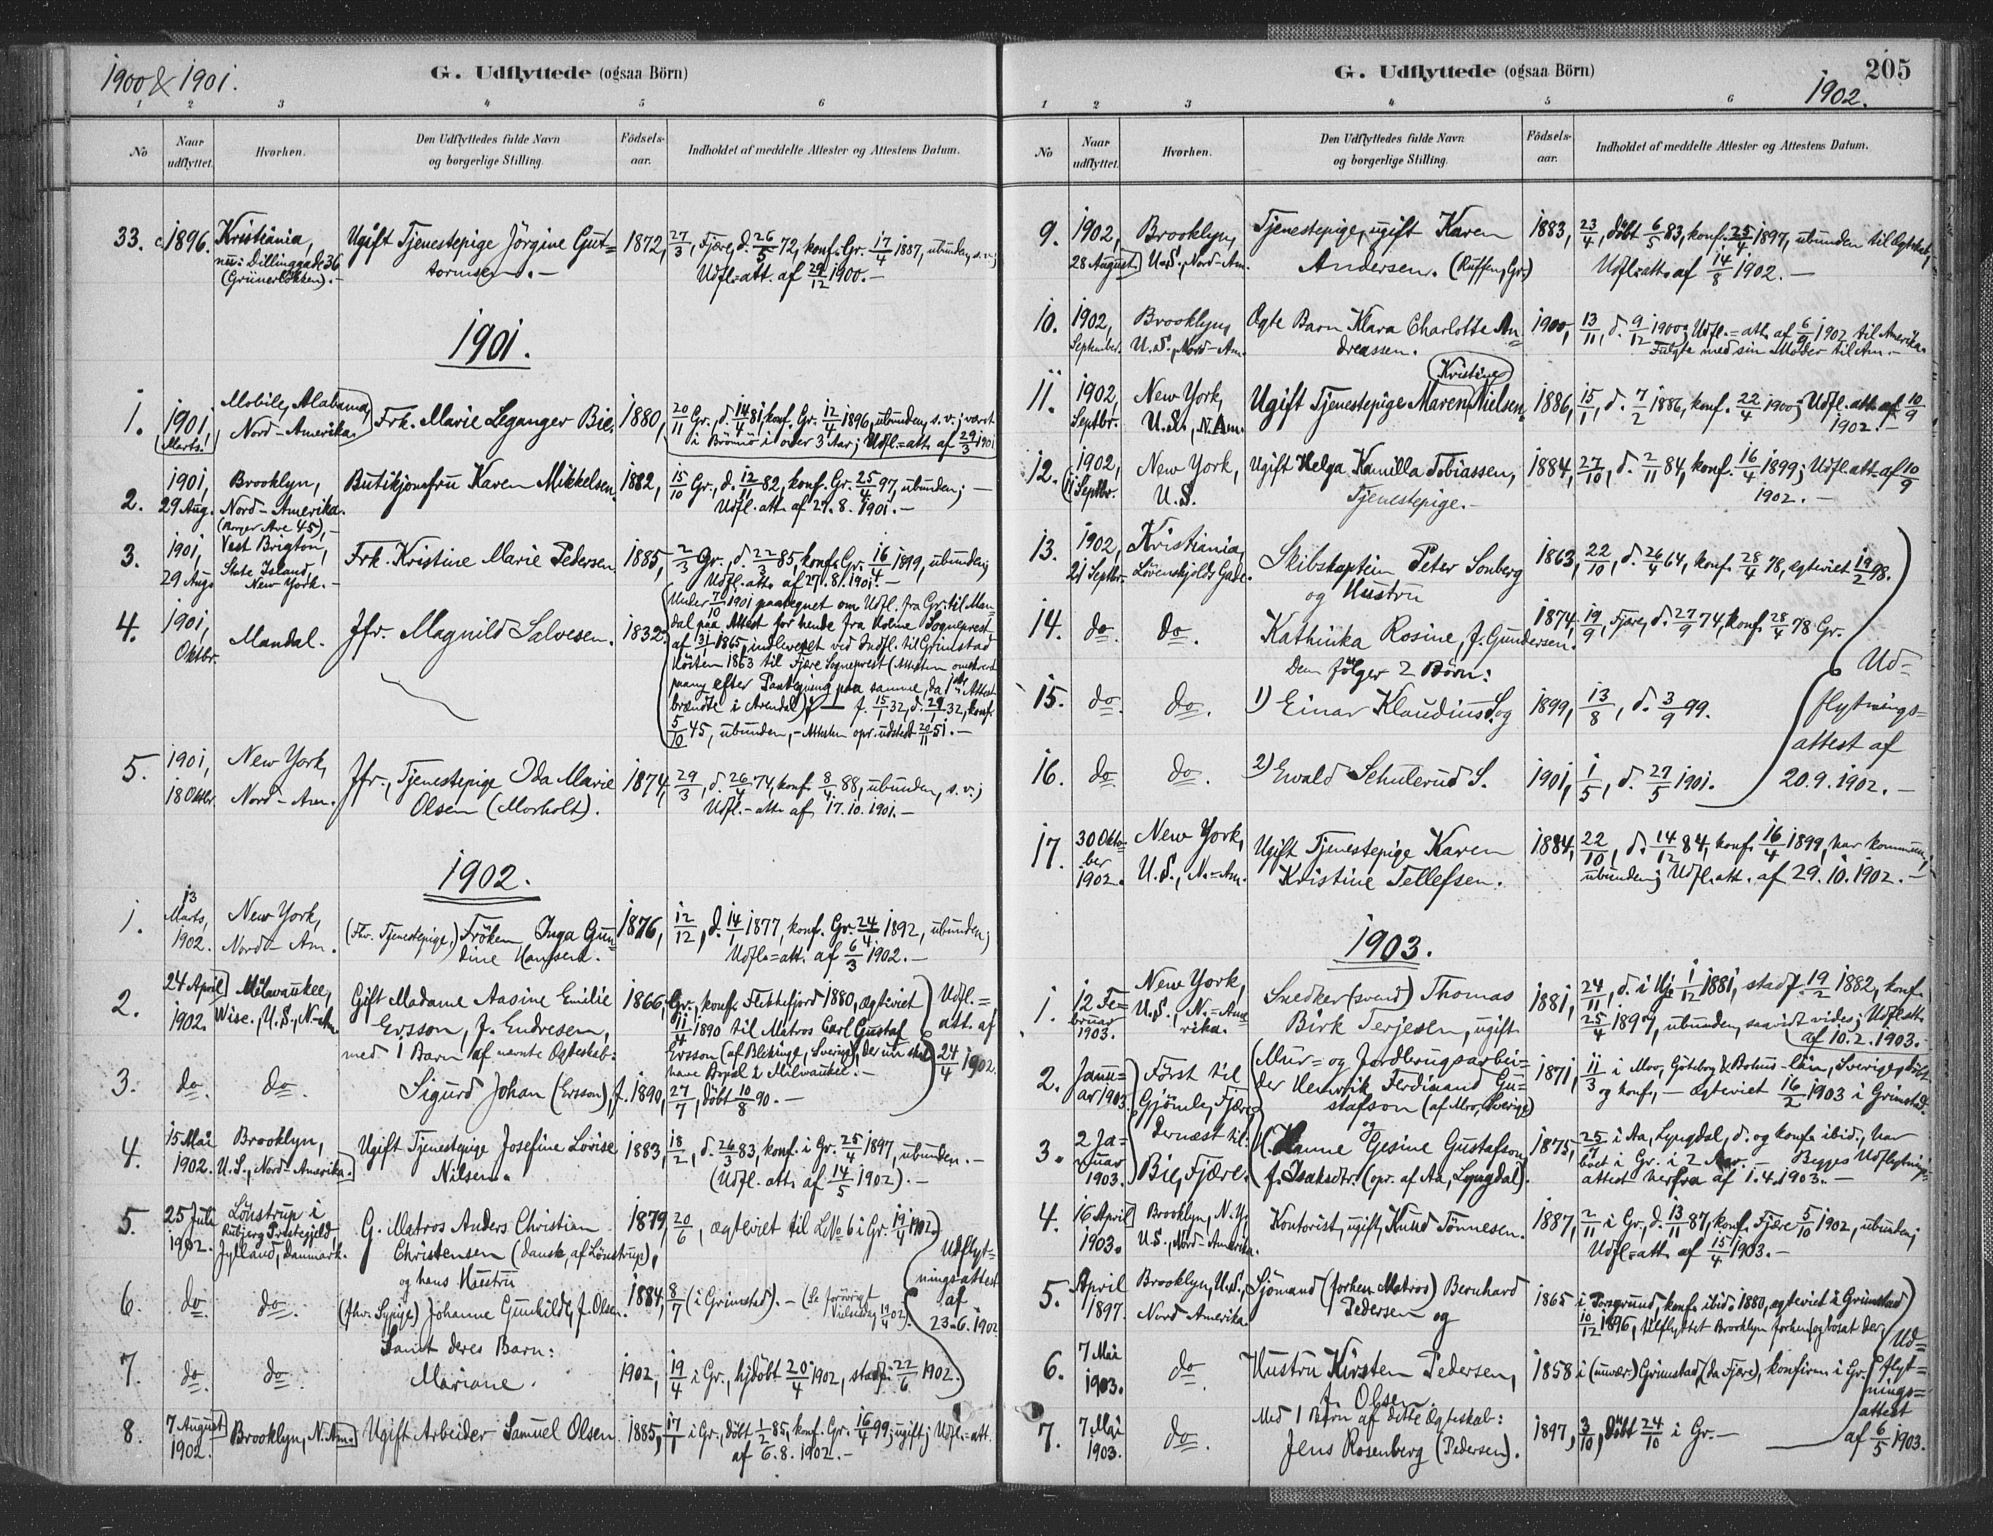 1900 & 1901.
G. Udflyttede (ogsaa Börn)
1 2 3 4 5 6
No
Naar udflyttet.
Hvorhen.
Den Udflyttedes fulde Navn og borgerlige Stilling.
Födselsaar.
Indholdet af meddelte Attester og Attestens Datum.
33. c. 1896. Kristiania, Ugift Tjenestepige Jörgine Gut= 1872, 27/3, Fjære, d. 26/5 72, konf. Gr. 17/4 1887, ubunden, s. v.;
nu: Dillinggade 36 tormsen. — Udfl.=att. af 29/12 1900. —
(Grünerlökken). —
1901.
1. 1901 Mobile, Alabama, Frk. Marie Leganger Bie. 1880, 20/11 Gr., d. 14/4 81, konf. Gr. 12/4 1896, ubunden, s. v.; været
Marts. Nord-Amerika. i over 3 Aar; Udfl.=att. af 29/3 1901
2. 1901, Brooklyn, Butikjomfru Karen Mikkelsen. 1882, 15/10 Gr., d. 12/11 82, konf. Gr. 25/4 97, ubunden; —
29 Aug. Nord-Amerika. Udfl. att. af 27. 8. 1901. —
Ave 45), —
3. 1901, Vest Brigton, Frk. Kristine Marie Pedersen. 1885, 2/3 Gr., d. 22/3 85, konf. Gr. 16/4 1899, ubunden;
29 Aug. State Island, Udfl. att. af 27. 8. 1901. —
New York. —
4. 1901, Mandal. Jfr. Magnild Salvesen. 1832. Under 7/10 1901 paategnet om Udfl. fra Gr. til Man=
Oktbr. dal paa Attest for hende fra Holme Sogneprest
af 31/1 1865, indleveret ved Indfl. til Grimstad
Hösten 1863 til Fjære Sogneprest (Attesten omskrevet
paany efter Paategning paa samme, da Attest
brændte i Arendal); — f. 15/1 32, d. 29/1 32, konf.
5/10 45, ubunden, — Attesten opr. udstedt 20/11 51. —
5. 1901, New York, Jfr., Tjenestepige Oda Marie 1874, 29/3, d. 26/4 74, konf. 8/4 88, ubunden, s. v.;
18 Oktbr. Nord-Am. Olsen (Morholt). Udfl.-att. af 17. 10. 1901. —
1902.
1. 13 Marts, New York, (Fhv. Tjenestepige,) Fröken Inga Gun= 1876, 12/12, d. 14/1 1877, konf. Gr. 24/4 1892, ubunden;
1902. Nord-Am. dine Hansen. Udfl.=att. af 6/3 1902. —
2. 24 April Milwaukee, Gift Madame Aasine Emilie 1866, Gr., konf. Flekkefjord 1880, ægteviet Udfl.=
1902. Wisc., U.S., N.-Am. Ersson, f. Endresen, 11/4 1890 til Matros Carl Gustaf att. af
med 1 Barn af nævnte Ægteskab: Ersson (af Blekinge, Sverige), der nu skal 24/4 1902.
have Bopæl i Milwaukee. —
3. do do. Sigurd Johan (Ersson), f. 1890, 27/7, döbt 10/8 90. —
4. 15 Mai Brooklyn, Ugift Tjenestepige Josefine Lovise 1883, 18/2, d. 26/3 83, konf. i Gr. 25/4 1897, ubunden. —
1902. U.S., Nord-Amerika. Nilsen. (Udfl. att. af 14/5 1902). —
5. 25 Juli Lönstrup i G. Matros Anders Christian 1879, 20/6, ægteviet til LNo 6 i Gr. 19/4 1902. Udflyt=
1902. Rubjerg Prestegjeld Christensen (dansk, af Lönstrup), ningsattest
Jylland, Danmark. og hans Hustru af
6. do do. (fhv. Sypige) Johanne Gunhild, f. Olsen. 1884, 8/7 (i Grimstad). — (Se forövrigt Vielsesdag 19/4 02). 23.6.1902
Samt deres Barn:
7. do. do. Mariane. 1902, 19/4 i Gr., hjdöbt 20/4 1902, stadf. 22/6 1902.
8. 7 August Brooklyn, N. Am. Ugift Arbeider Samuel Olsen. 1885, 17/1 i Gr., döbt 1/2 85, konf. Gr. 16/4 99; ugift; Udfl.=att.
1902. af 6. 8. 1902. —
G. Udflyttede (ogsaa Börn)
205
1902.
1 2 3 4 5 6
No
Naar udflyttet.
Hvorhen.
Den Udflyttedes fulde Navn og borgerlige Stilling.
Födselsaar.
Indholdet af meddelte Attester og Attestens Datum.
9. 1902, Brooklyn, Tjenestepige, ugift Karen 1883, 23/4, döbt 6/5 83, konf. 25/4 1897, ubunden til Ægteskab,
28 August U.S., Nord-Am. Andersen. (Gr.) Udfl.=att. af 14/8 1902. —
10. 1902, Brooklyn, Ægte Barn Klara Charlotte An= 1900, 13/11, d. 9/12 1900; Udfl.=att. af 6/9 1902 til Amerika.
September. U.S., Nord-Am. dreassen. Fulgte med sin Moder til Am. —
11. 1902, New York, Ugift Tjenestepige Maren Kristine Nielsen, 1886, 15/11, d. 7/2 1886, konf. 22/4 1900; Udfl. att. af 10/9
Septbr. U.S., N.Am. 1902. —
12. 1902, New York, Ugift Helga Kamilla Tobiassen, 1884, 27/10, d. 2/11 84, konf. 16/4 1899; Udfl. att. af 10/9
11 Septbr. U.S. Tjenestepige. — 1902. —
13. 1902, Kristiania, Skibskaptein Peter Sonberg 1863, 22/10, d. 26/4 64, konf. 28/4 78, ægteviet 19/2 98.
21 Septbr. Lövenskjolds Gade. og Hustru
14. do. do. Kathinka Rosine, f. Gundersen. 1874, 19/9, Fjære, d. 27/9 74, konf. 28/4 78 Gr.
Dem fölger 2 Börn: Ud=
15. do. do. 1) Einar Klaudius S. og 1899, 13/8, d. 3/9 99. flytnings=
attest af
16. do. do. 2) Ewald Schulerud S. 1901, 1/5, d. 27/5 1901. 20.9.1902. —
17. 30 Okto= New York, Ugift Tjenestepige Karen 1884, 22/10, d. 14/12 84, konf. 16/4 1899, har kommun.;
ber 1902. U.S., N.-Am. Kristine Tellefsen. ubunden; Udfl. att. af 29. 10. 1902. —
1903.
1. 12 Fe= New York, Snedker(svend) Thomas 1881, 24/11, d. i Hj. 1/12 1881, stadf. 19/2 1882, konf.
bruar U.S., N.=Ame= Birk Terjesen, ugift 25/4 1897, ubunden, saavidt vides; Udfl. att.
1903. rika. af 10. 2. 1903. —
2. Janu= Först til Mur= og Jordbrugsarbei= 1871, 11/3 i Mor, Göteborg & Bohus-län, Sverige, döbt
ar 1903. Gjömle, Fjære der Henrik Ferdinand Gu= og konf., — ægteviet 16/2 1903 i Grimstad.
stafson (af Mor, Sverige)
dernæst til og
3. 2 Ja= Bie, Fjære. H. Hanne Gesine Gustafson, 1875, 25/7 i Aa, Lyngdal, d. og konf. ibid., har
nuar f. Isaksdtr. (opr. af Aa, Lyngdal). boet i Gr. i 2 Aar. — Begges Udflytnings=
1903. attest herfra af 1. 4. 1903. —
4. 16 April Brooklyn, N.Y., Kontorist, ugift, Knud Tönnesen. 1887, 2/11 i Gr., d. 13/11 87, konf. Fjære 5/10 1902, ubunden;
1903. U.S., Nord-Amerika. Udfl.=att. af 15/4 1903. —
5. April Brooklyn, U.S., Sjömand (forhen Matros) Bernhard 1865 i Porsgrund, konf. ibid. 1880, ægteviet i Grimstad
1897. Nord Amerika Pedersen og 10/12 1896, tilflyttet Brooklyn forhen og bosat der, Ud=
6. 7 Mai do Hustru Kirsten Pedersen, 1858 i (nuvær.) Grimstad, (da Fjære), konfirm. i Gr. flyt=
1903. f. Olsen. nings=
Med 1 Barn af dette Ægteskab: attest
7. 7 Mai do. Jens Rosenberg (Pedersen). 1897, 3/10, döbt 24/10 i Gr. — af 6/5 1903.
1903.